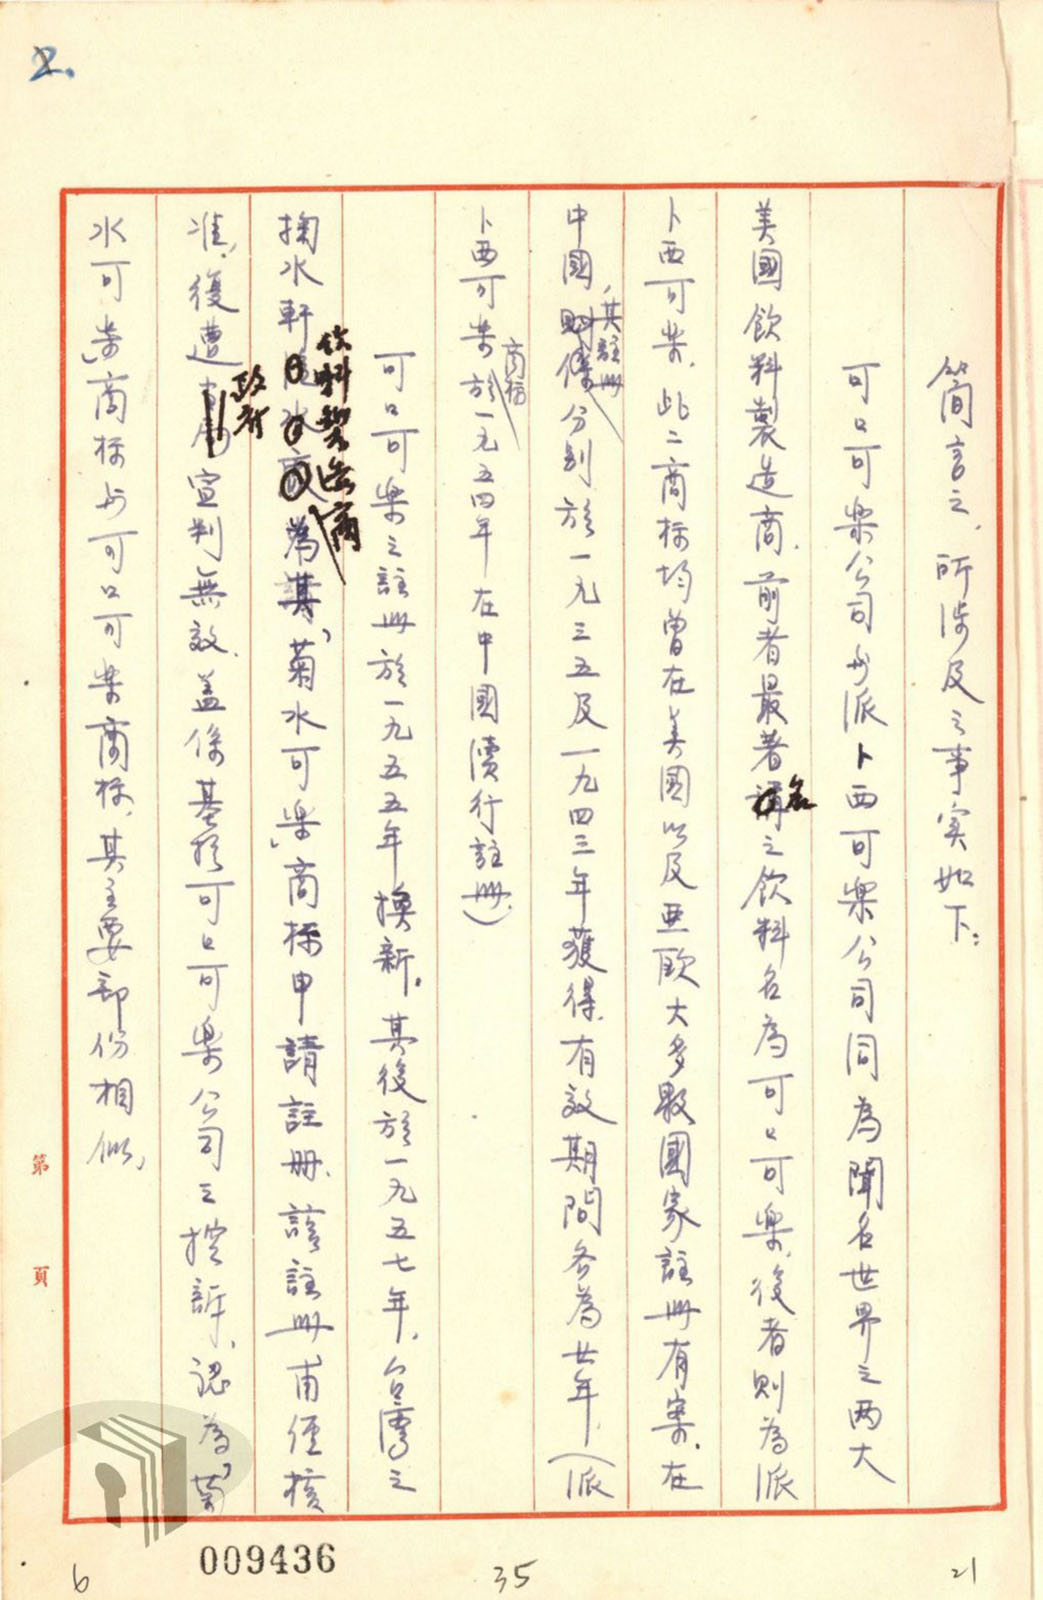 2.
簡言之，所涉及之事实如下：
可口可樂公司与派卜西可樂公司同為聞名世界之兩大
美國飲料製造商，前者最著名之飲料名為可口可樂，後者則為派
卜西可樂，此二商標均曾在美國以及亞歐大多數國家註冊有案，在
中國，其註冊分別於一九三五及一九四三年獲得，有效期間各為廿年，（派
卜西可樂商標於一九五四年在中國續行註冊。）
可口可樂之註冊於一九五五年換新，其後於一九五七年，台灣之
掬水軒飲料製造商為其「菊水可樂」商標申請註冊，該註冊甫經核
准，後遭政府宣判無效，蓋係基於可口可樂公司之控訴，認為「菊
水可樂」商標与可口可樂商標，其主要部份相似，
第 頁
009436
6 35 21